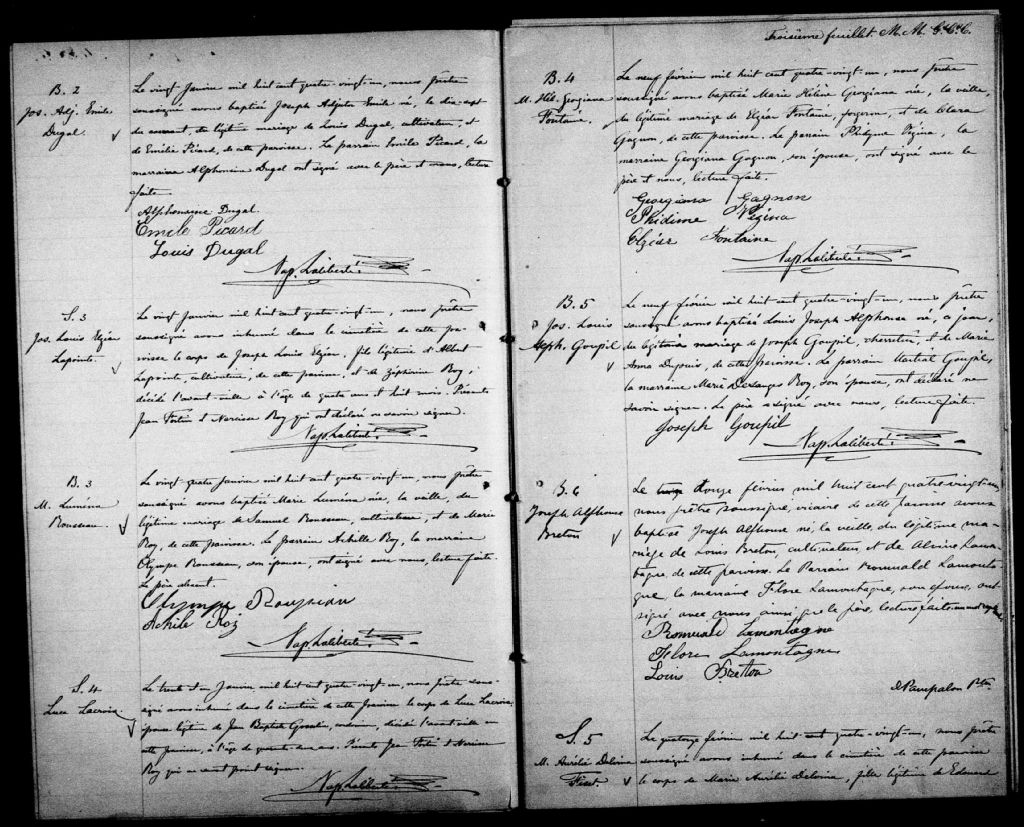 B. 2
Jos. Adj. Emile
Dugal.
Le vingt Janvier mil huit cent quatre-vingt-un, nous prêtre
soussigné avons baptisé Joseph Adjutor Emile né, le dix-sept
du courant, du légitime mariage de Louis Dugal, cultivateur, et
de Emélie Picard, de cette paroisse. Le parrain Emile Picard, la
marraine Alphonsine Dugal ont signé avec le père et nous, lecture
faite.
Alphonsine Dugal.
Emile Picard
Louis Dugal
Nap. Laliberté. Ptre
S. 3
Jos. Louis Elzéar
Lapointe.
Le vingt Janvier mil huit cent quatre-vingt-un, nous prêtre
soussigné avons inhumé dans le cimetière de cette pa-
roisse le corps de Joseph Louis Elzéar, fils légitime d'Albert
Lapointe, cultivateur, de cette paroisse, et de Zéphirine Roy,
décédé l'avant-veille à l'âge de quatre ans et huit mois. Présents
Jean Fortin et Narcisse Roy qui ont déclaré ne savoir signer.
Nap. Laliberté. Ptre
B. 3
M. Luména
Rousseau.
Le vingt quatre Janvier mil huit cent quatre-vingt-un, nous prêtre
soussigné avons baptisé Marie Luména née, la veille, du
légitime mariage de Samuel Rousseau, cultivateur, et de Marie
Roy, de cette paroisse. Le parrain Achille Roy, la marraine
Olympe Rousseau, son épouse, ont signé avec nous, lecture faite.
Le père absent.
Olympe Rousseau
Achile Roy
Nap. Laliberté. Ptre
S. 4
Luce Lacroix.
Le trente et un Janvier mil huit cent quatre-vingt-un, nous prêtre sous-
signé avons inhumé dans le cimetière de cette paroisse le corps de Luce Lacroix,
épouse légitime de Jean Baptiste Gosselin, décédée l'avant-veille en
cette paroisse, à l'âge de ans. Présents Jean Fortin et Narcisse
Roy qui ne savent point signer.
Nap. Laliberté. Ptre
Troisième feuillet. M. M. G. C. C.
B. 4
M. Hél. Georgiana
Fontaine.
Le neuf février mil huit cent quatre-vingt-un, nous prêtre
soussigné avons baptisé Marie Hélène Georgiana née, la veille,
du légitime mariage de Elzéar Fontaine, forgeron, et de Clara
Gagnon, de cette paroisse. Le parrain Phidyme Vézina, la
marraine Georgiana Gagnon, son épouse, ont signé avec le
père et nous, lecture faite.
Georgiana Gagnon
Phidime Vézina
Elzéar Fontaine
Nap. Laliberté. Ptre
B. 5
Jos. Louis
Alph. Goupil
Le neuf février mil huit cent quatre-vingt-un, nous prêtre
soussigné avons baptisé Louis Joseph Alphonse né, ce jour,
du légitime mariage de Joseph Goupil, charretier, et de Marie
Anna Dupuis, de cette paroisse. Le parrain Martial Goupil,
la marraine Marie Desanges Roy, son épouse, ont déclaré ne
savoir signer. Le père a signé avec nous, lecture faite.
Joseph Goupil
Nap. Laliberté. Ptre
B. 6
Joseph Alphonse
Breton
Le douze février mil huit cent quatre vingt un
nous prêtre soussigné, vicaire de cette paroisse avons
baptisé Joseph Alphonse né, la veille, du légitime ma-
riage de Louis Breton, cultivateur, et de Alvine Lamon-
tagne, de cette paroisse. Le Parrain Romuald Lamonta-
gne, la marraine Flore Lamontagne, ont
signé avec nous ainsi que le père, lecture faite
Romuald Lamontagne
Flore Lamontagne
Louis Bretton
Pampalon Ptre
S. 5
M. Aurélie Delvina
Fiset.
Le quatorze février mil huit cent quatre-vingt-un, nous prêtre
soussigné avons inhumé dans le cimetière de cette paroisse
le corps de Marie Aurélie Delvina, fille légitime de Edouard